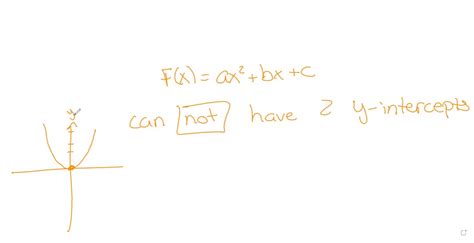 f(x) = ax² + bx + c
can not have 2 y-intercepts
y